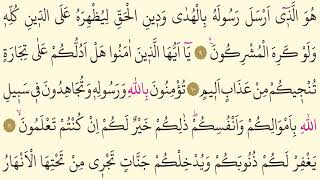 هُوَ الَّذٖٓي اَرْسَلَ رَسُولَهُ بِالْهُدٰى وَدٖينِ الْحَقِّ لِيُظْهِرَهُ عَلَى الدّٖينِ كُلِّهٖ
وَلَوْ كَرِهَ الْمُشْرِكُونَ ﴿٩﴾ يَٓا اَيُّهَا الَّذٖينَ اٰمَنُوا هَلْ اَدُلُّكُمْ عَلٰى تِجَارَةٍ
تُنْجٖيكُمْ مِنْ عَذَابٍ اَلٖيمٍ ﴿١٠﴾ تُؤْمِنُونَ بِاللّٰهِ وَرَسُولِهٖ وَتُجَاهِدُونَ فٖي سَبٖيلِ
اللّٰهِ بِاَمْوَالِكُمْ وَاَنْفُسِكُمْ ذٰلِكُمْ خَيْرٌ لَكُمْ اِنْ كُنْتُمْ تَعْلَمُونَ ﴿١١﴾
يَغْفِرْ لَكُمْ ذُنُوبَكُمْ وَيُدْخِلْكُمْ جَنَّاتٍ تَجْرٖي مِنْ تَحْتِهَا الْاَنْهَارُ